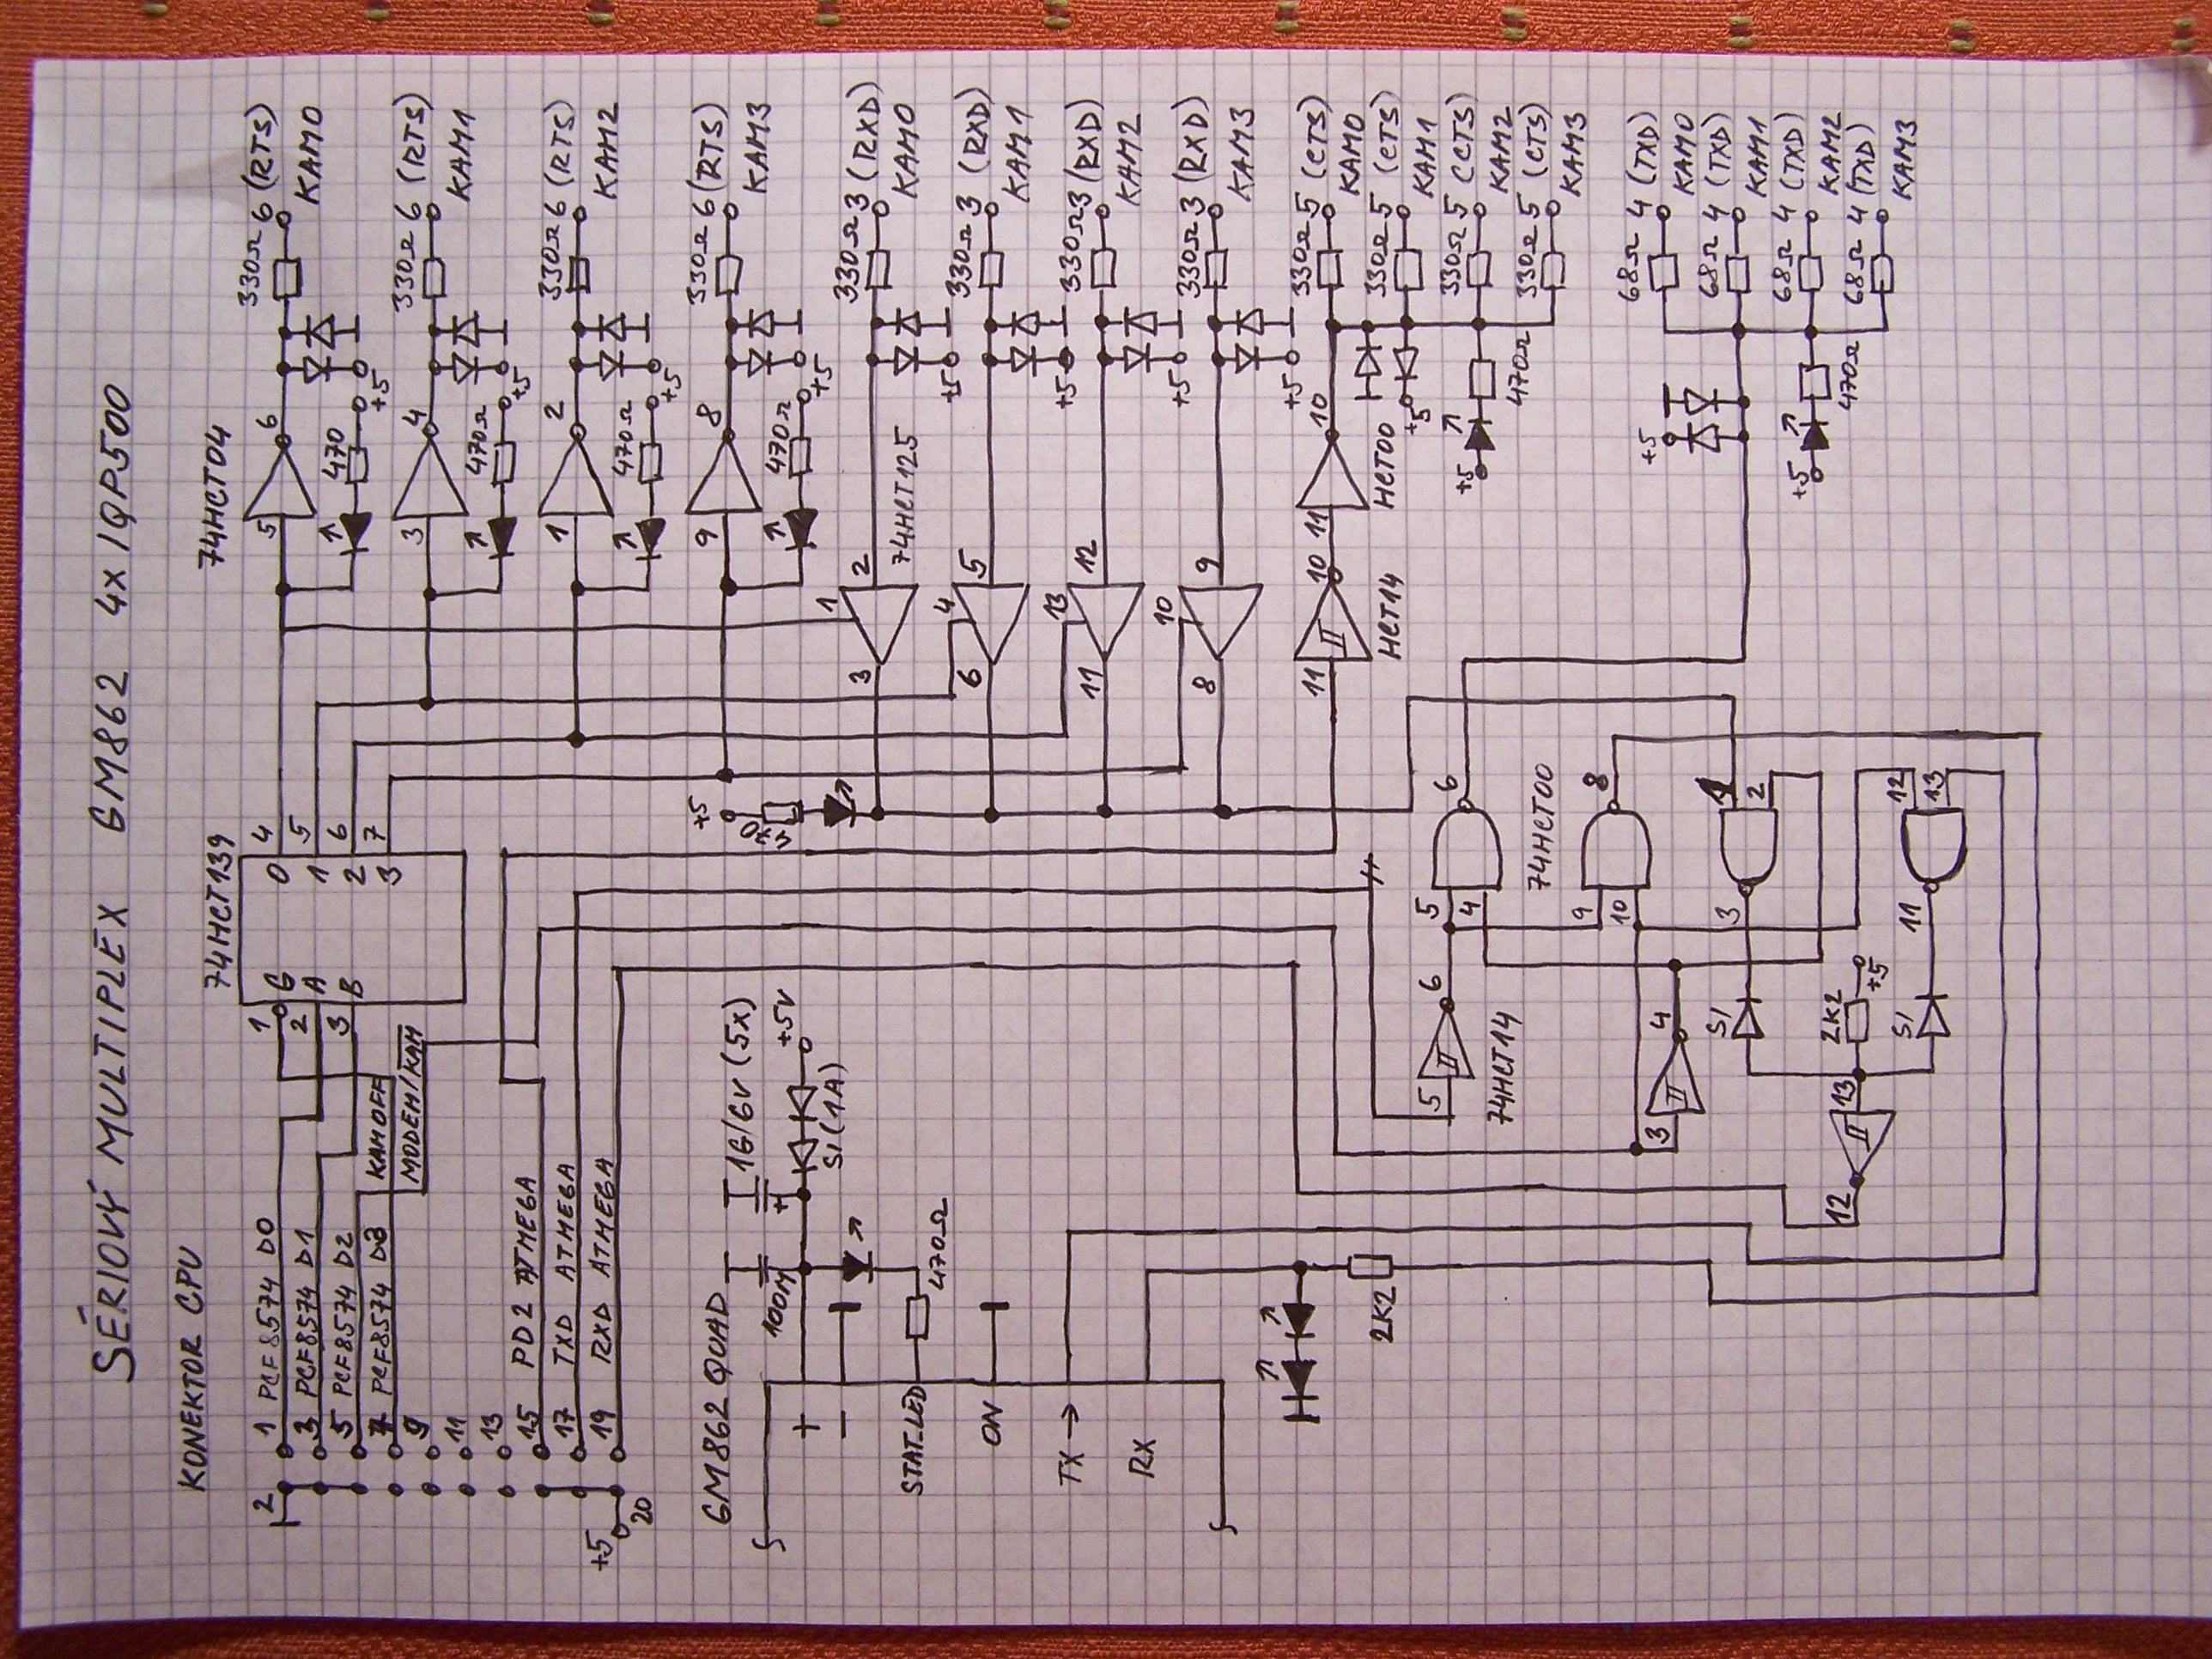 SÉRIOVÝ MULTIPLEX GM862 4x IQP500
KONEKTOR CPU
74HCT139
74HCT04
2
1 PCF8574 D0
3 PCF8574 D1
5 PCF8574 D2
7 PCF8574 D3
9
11
13
15 PD2 ATMEGA
17 TXD ATMEGA
19 RXD ATMEGA
+5
20
KAMOFF
MODEM/KAM
1 G
2 A
3 B
0 4
1 5
2 6
3 7
5 6
330Ω 6 (RTS)
KAM0
470
+5
3 4
330Ω 6 (RTS)
KAM1
470Ω
+5
1 2
330Ω 6 (RTS)
KAM2
470Ω
+5
9 8
330Ω 6 (RTS)
KAM3
470Ω
+5
+5
3 1 2
74HCT125
330Ω 3 (RXD)
KAM0
+5
6 4 5
330Ω 3 (RXD)
KAM1
+5
11 13 12
330Ω 3 (RXD)
KAM2
+5
8 10 9
330Ω 3 (RXD)
KAM3
+5
11 10
HCT14
11 10
HCT00
330Ω 5 (CTS)
KAM0
330Ω 5 (CTS)
KAM1
330Ω 5 (CTS)
KAM2
330Ω 5 (CTS)
KAM3
+5
+5
470Ω
68Ω 4 (TXD)
KAM0
68Ω 4 (TXD)
KAM1
68Ω 4 (TXD)
KAM2
68Ω 4 (TXD)
KAM3
+5
+5
470Ω
GM862 QUAD
100M
1G/6V (5x)
+5V
SI (1A)
+
−
STAT.LED
470Ω
ON
TX →
RX
2K2
5 6
74HCT14
5
4
6
74HCT00
9
10
8
3 4
3
1
2
SI
2K2
+5
SI
11
12
13
13
12